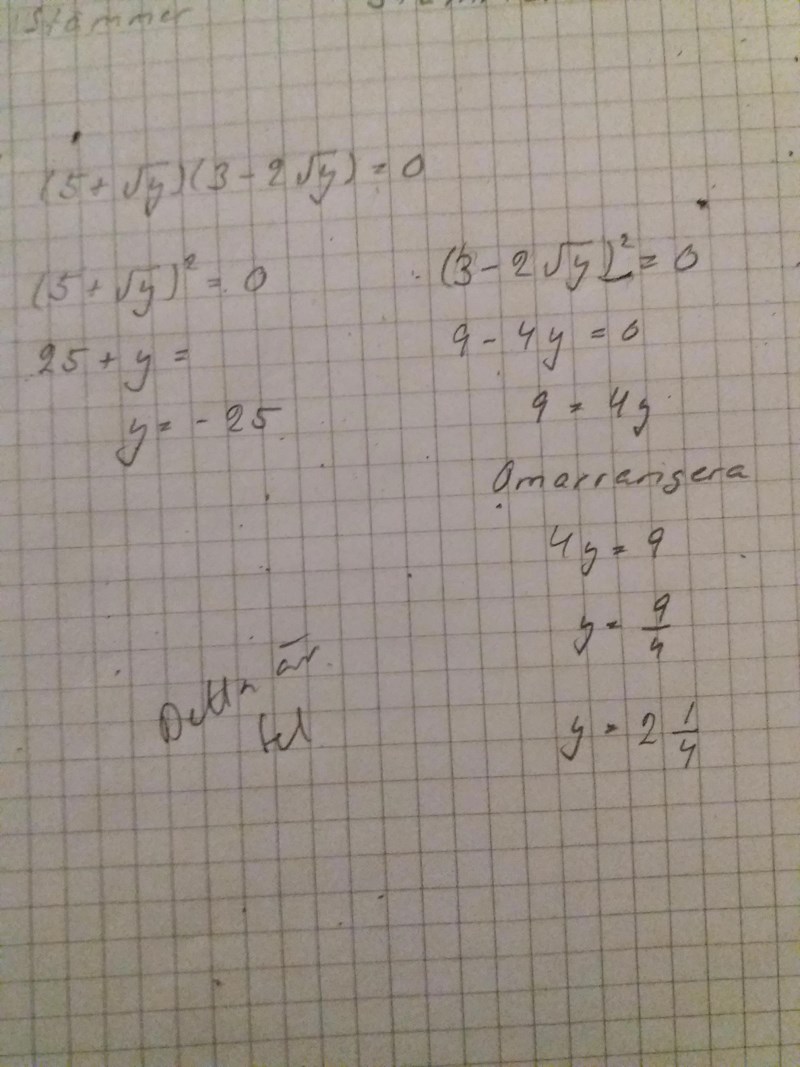 Stämmer
(5 + √y)(3 - 2√y) = 0
(5 + √y)² = 0
25 + y =
y = - 25
(3 - 2√y)² = 0
9 - 4y = 0
9 = 4y
Omarrangera
4y = 9
y = 9/4
y = 2 1/4
Detta är
fel